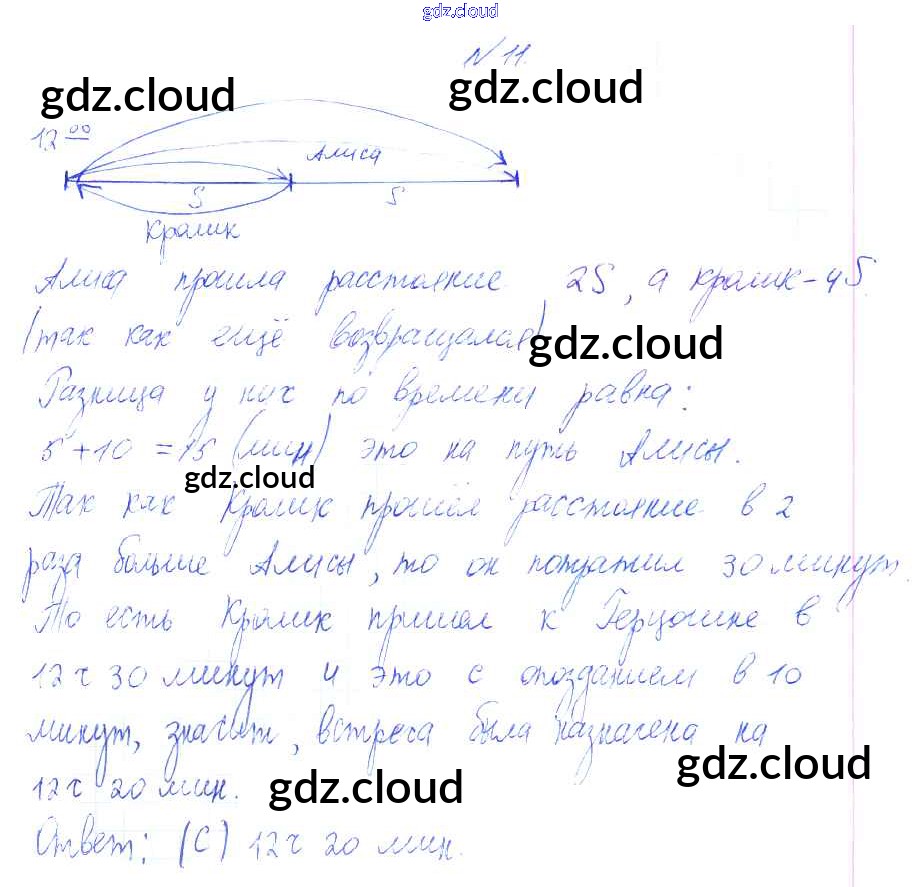 gdz.cloud
N 11.
gdz.cloud gdz.cloud
12 00
Алиса
S S
Кролик
Алиса прошла расстояние 2S, а кролик - 4S.
(так как ещё возвращался)
gdz.cloud
Разница у них по времени равна:
5 + 10 = 15 (мин) это на путь Алисы.
gdz.cloud
Так как Кролик прошёл расстояние в 2
раза больше Алисы, то он потратил 30 минут.
То есть Кролик пришел к Герцогине в
12 ч 30 минут и это с опозданием в 10
минут, значит, встреча была назначена на
gdz.cloud
12 ч 20 мин.
gdz.cloud
Ответ: (C) 12 ч 20 мин.